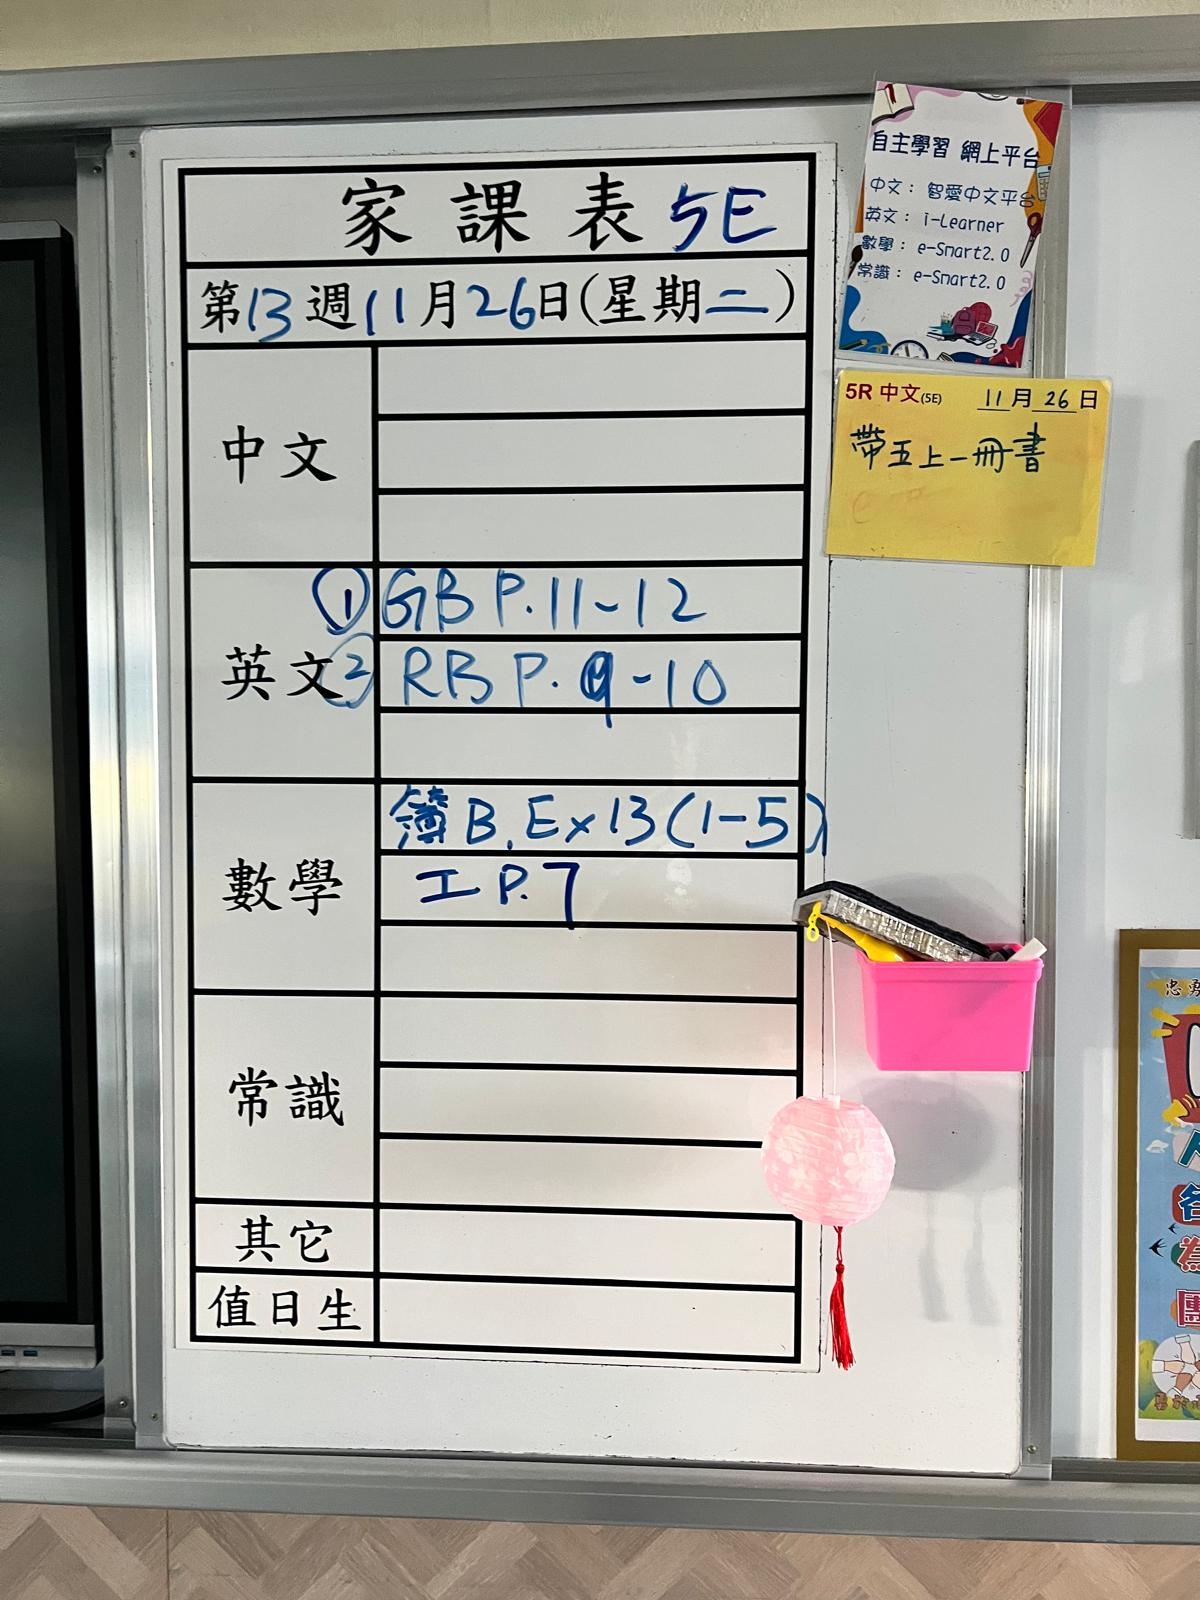 家課表 5E
第13週11月26日(星期二)
中文
英文
① GB P.11-12
② RB P.9-10
數學
簿B.Ex13(1-5)
工 P.7
常識
其它
值日生
自主學習 網上平台
中文：智愛中文平台
英文：i-Learner
數學：e-Smart2.0
常識：e-Smart2.0
5R 中文(5E) 11月26日
帶五上一冊書
忠勇
各
為
團